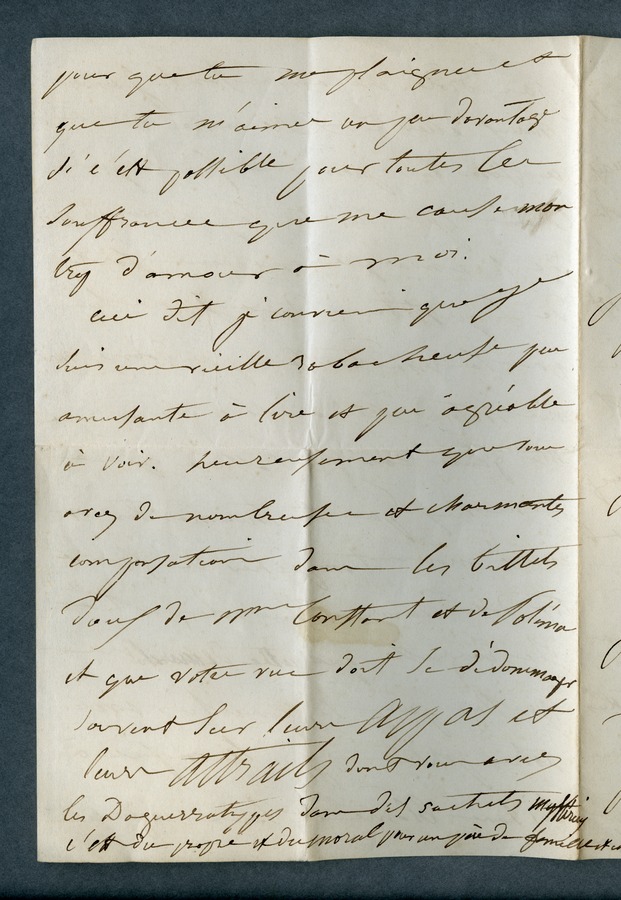 pour que tu me plaignes et
que tu m'aimes un peu davantage
si c'est possible pour toutes les
souffrances que me cause mon
trop d'amour à moi.
Ceci dit je conviens que je
suis une vieille rabacheuse peu
amusante à lire et peu agréable
à voir. heureusement que vous
avez de nombreuses et charmantes
compensations dans les billets
doux de Mme Constant et de
et que votre vue doit se dédommager
souvent sur leurs appas et
leurs attraits dont vous avez
les Daguerratypes dans des sachets
c'est du propre et du moral pour un père de famille et